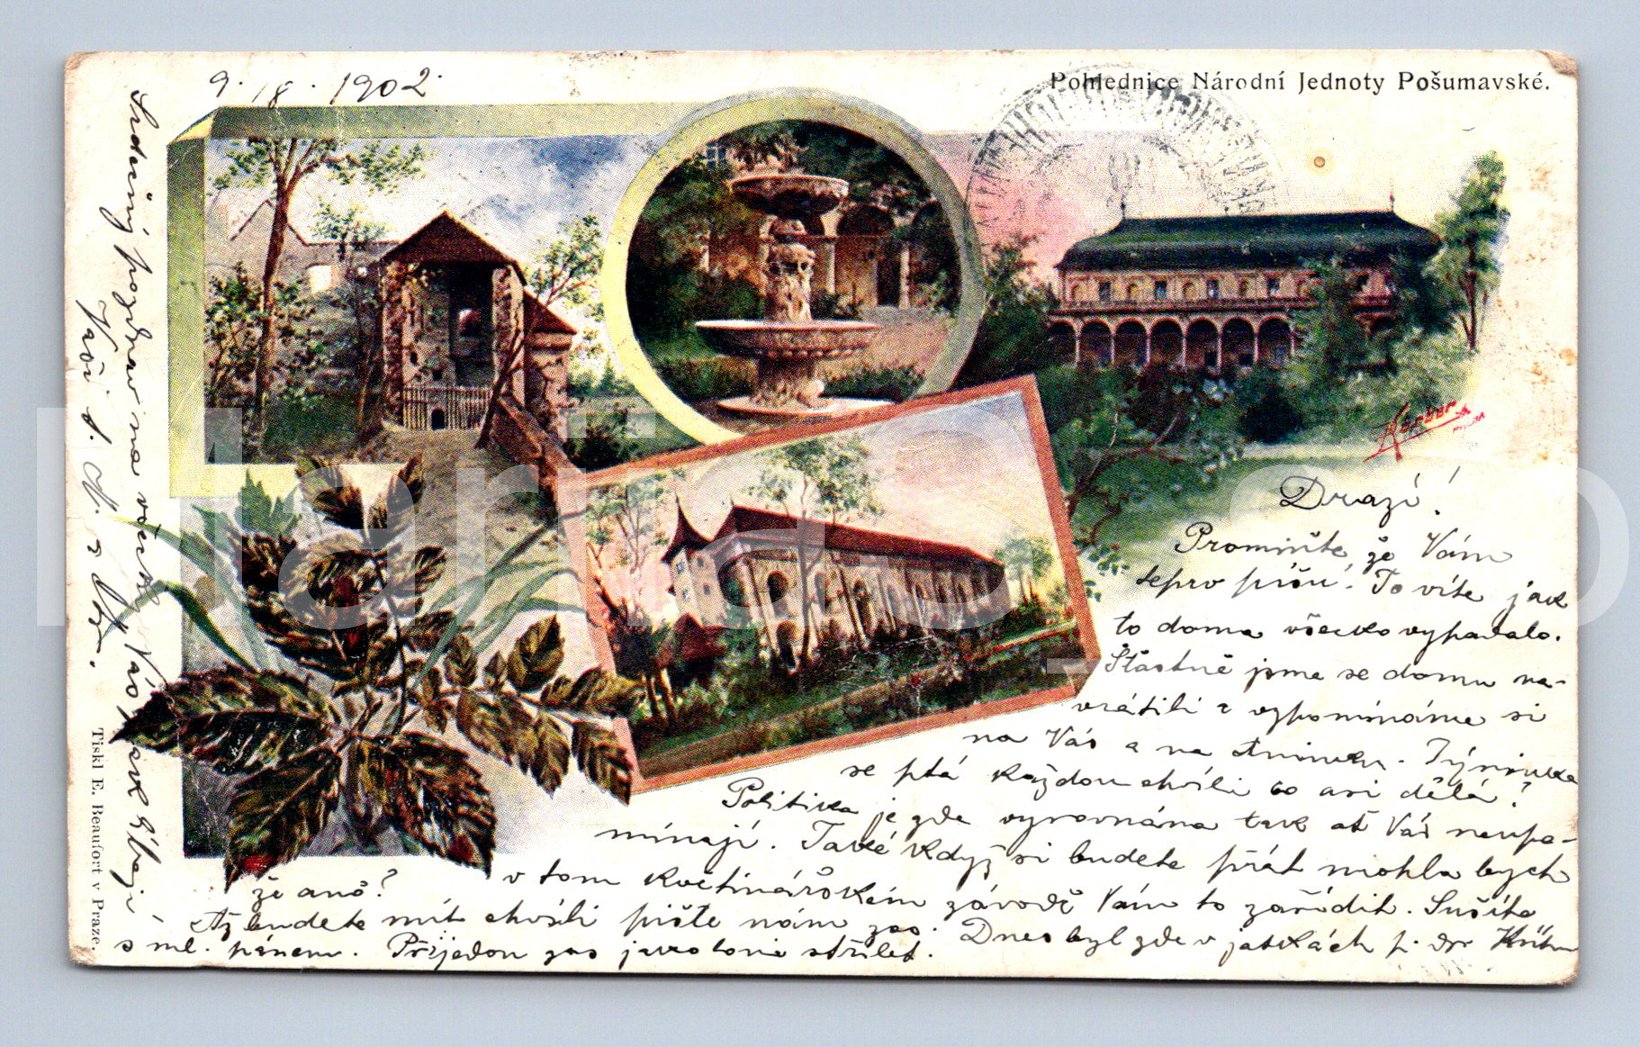 9. 18. 1902.
Pohlednice Národní Jednoty Pošumavské.
Drazí!
Promiňte že Vám
teprv píšu! To víte jak
to doma všecko vypadalo.
Šťastně jsme se domu na-
vrátili a vzpomínáme si
na Vás a na
se ptá každou chvíli co asi dělá?
Politika je zde vyrovnána tak ať Vás neupo-
mínají. Také když si budete přát mohla bych
v tom květinářském závodě Vám to zařídit. Sušíte
že ano?
Až budete mít chvíli pište nám zas. Dnes byl zde v jatkách p. dr.
s ml. pánem. Přijedou zas jako loni střílet.
Srdečný pozdrav na všecky Vás
Vaši
Tiskl E. Beaufort v Praze.